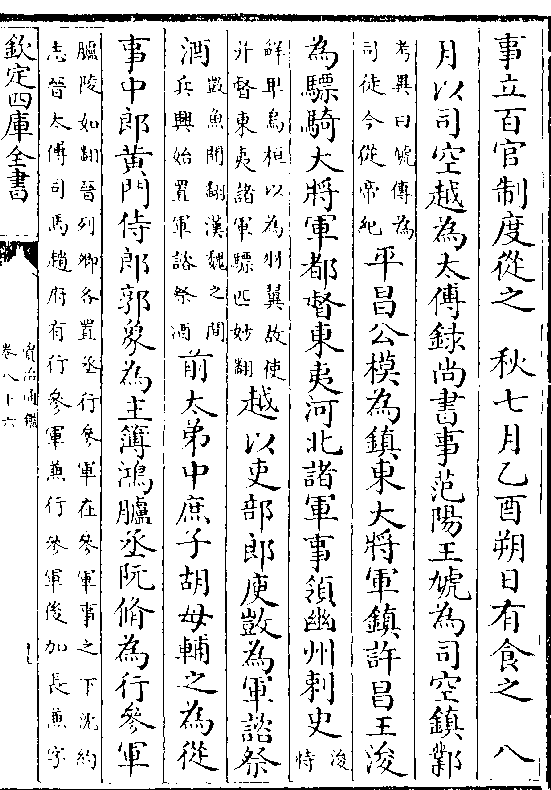 事立百官制度從之　秋七月乙酉朔日有食之　八
月以司空越為太傅錄尚書事范陽王虓為司空鎮鄴
考異曰虓傳為
司徒今從帝紀
平昌公模為鎮東大將軍鎮許昌王浚
為驃騎大將軍都督東夷河北諸軍事領幽州刺史
浚
恃
鮮卑烏桓以為羽翼故使
并督東夷諸軍驃匹妙翻
越以吏部郎庾敳為軍諮祭
酒
敳魚開翻漢魏之間
兵興始置軍諮祭酒
前太弟中庶子胡母輔之為從
事中郎黃門侍郎郭象為主簿鴻臚丞阮脩為行參軍
臚陵如翻晉列卿各置丞行參軍在參軍事之下沈約
志晉太傅司馬趙府有行參軍兼行參軍後加長兼字
欽定四庫全書
資治通鑑
卷八十六